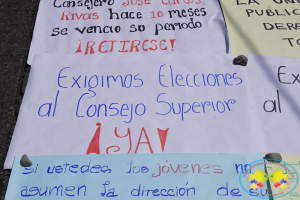 Consejero José Carlos
Rivas hace 10 meses
se vencio su periodo
¡RETIRESE!
Exigimos Elecciones
al Consejo Superior
¡YA!
Si ustedes los jóvenes no
asumen la dirección de su
LA UN
PUBLIC
DERE
TO
Ex
al